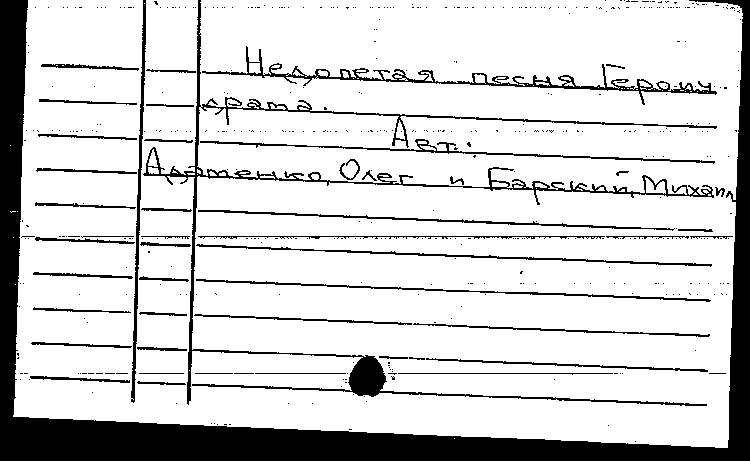 Недопетая песня Герои.
драма.
Авт.:
Адаменко, Олег и Барский, Михаил